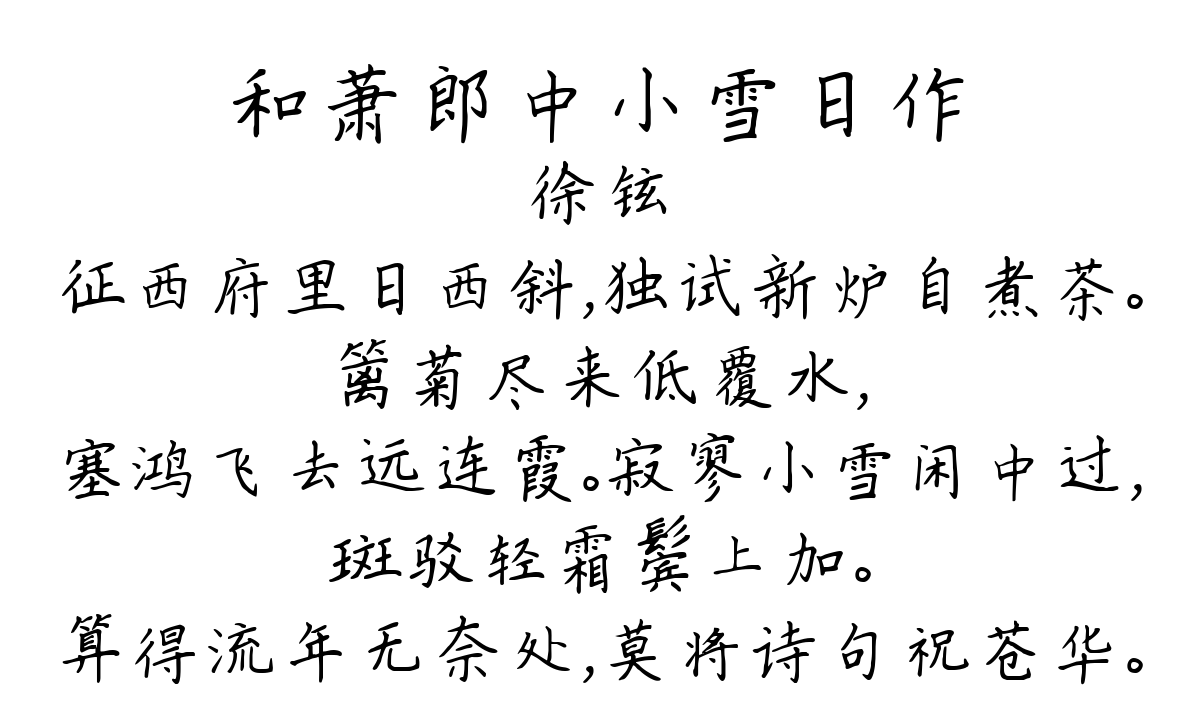 和萧郎中小雪日作
徐铉
征西府里日西斜,独试新炉自煮茶。
篱菊尽来低覆水,
塞鸿飞去远连霞。寂寥小雪闲中过,
斑驳轻霜鬓上加。
算得流年无奈处,莫将诗句祝苍华。